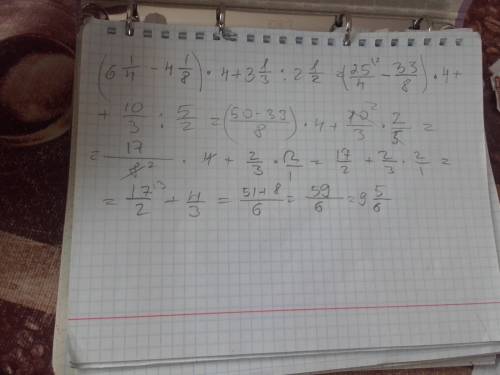 (6 1/4 - 4 1/8) · 4 + 3 1/3 : 2 1/2 = (25/4 - 33/8) · 4 +
+ 10/3 : 5/2 = (50-33)/8 · 4 + 10/3 · 2/5 =
= 17/8 · 4 + 2/3 · 2/1 = 17/2 + 2/3 · 2/1 =
= 17/2 + 4/3 = 51+8/6 = 59/6 = 9 5/6